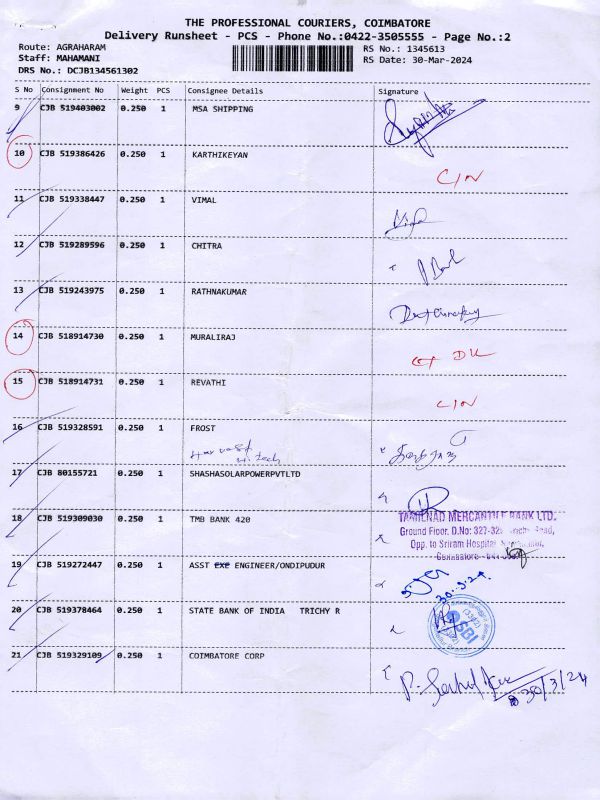 THE PROFESSIONAL COURIERS, COIMBATORE
Delivery Runsheet - PCS - Phone No.:0422-3505555 - Page No.:2
Route: AGRAHARAM RS No.: 1345613
Staff: MAHAMANI RS Date: 30-Mar-2024
DRS No.: DCJB134561302
S No Consignment No Weight PCS Consignee Details Signature
9 CJB 519403002 0.250 1 MSA SHIPPING
10 CJB 519386426 0.250 1 KARTHIKEYAN
C/N
11 CJB 519338447 0.250 1 VIMAL
12 CJB 519289596 0.250 1 CHITRA
13 CJB 519243975 0.250 1 RATHNAKUMAR
14 CJB 518914730 0.250 1 MURALIRAJ
15 CJB 518914731 0.250 1 REVATHI
C/N
16 CJB 519328591 0.250 1 FROST
17 CJB 80155721 0.250 1 SHASHASOLARPOWERPVTLTD
18 CJB 519309030 0.250 1 TMB BANK 420
TAMILNAD MERCANTILE BANK LTD.
Ground Floor, D.No: 327-328
Opp. to Sriram Hospital
19 CJB 519272447 0.250 1 ASST EXE ENGINEER/ONDIPUDUR
30.3.24
20 CJB 519378464 0.250 1 STATE BANK OF INDIA TRICHY R
SBI
21 CJB 519329109 0.250 1 COIMBATORE CORP
30/3/24